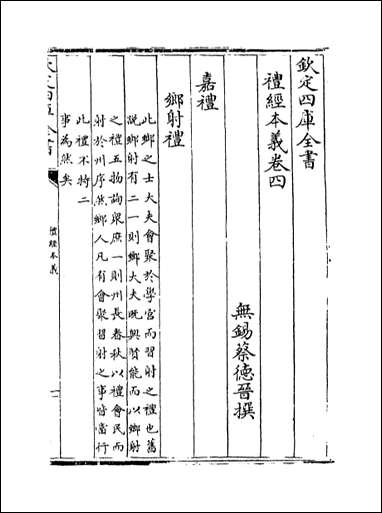 欽定四庫全書
禮經本義卷四
無錫蔡德晉撰
嘉禮
鄉射禮
此鄉之士大夫會聚於學宫而習射之禮也舊
説鄉射有二一則鄉大夫既興賢能而以鄉射
之禮五物詢衆庶一則州長春秋以禮會民而
射於州序然鄉人凡有會聚習射之事皆當行
此禮不特二
事為然矣
禮經本義